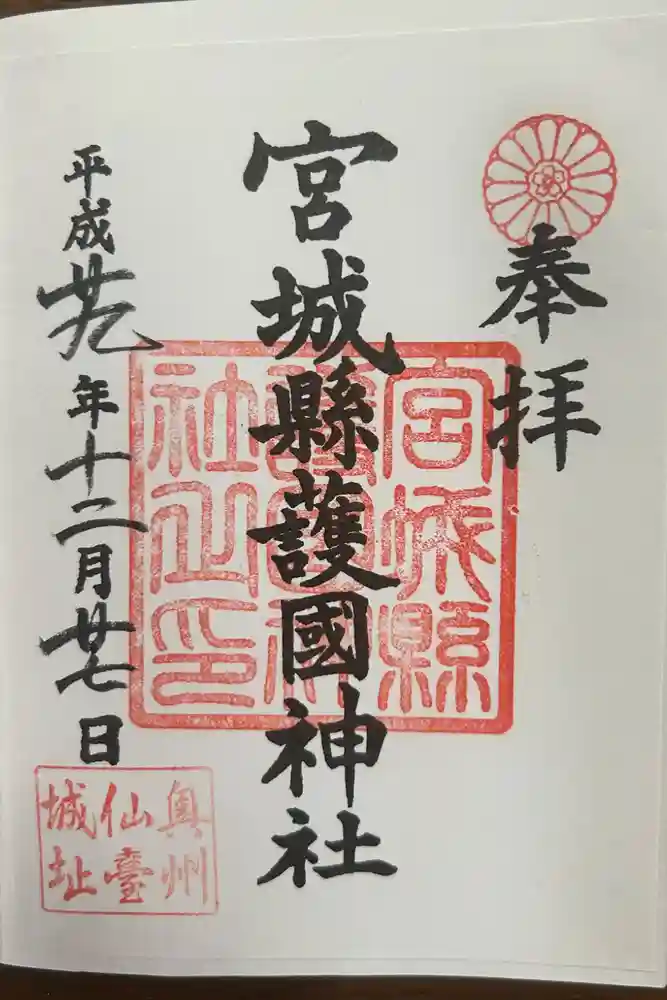 奉拝
宮城縣護國神社
宮城縣護國神社之印
平成廿九年十二月廿七日
奥州
仙臺
城址